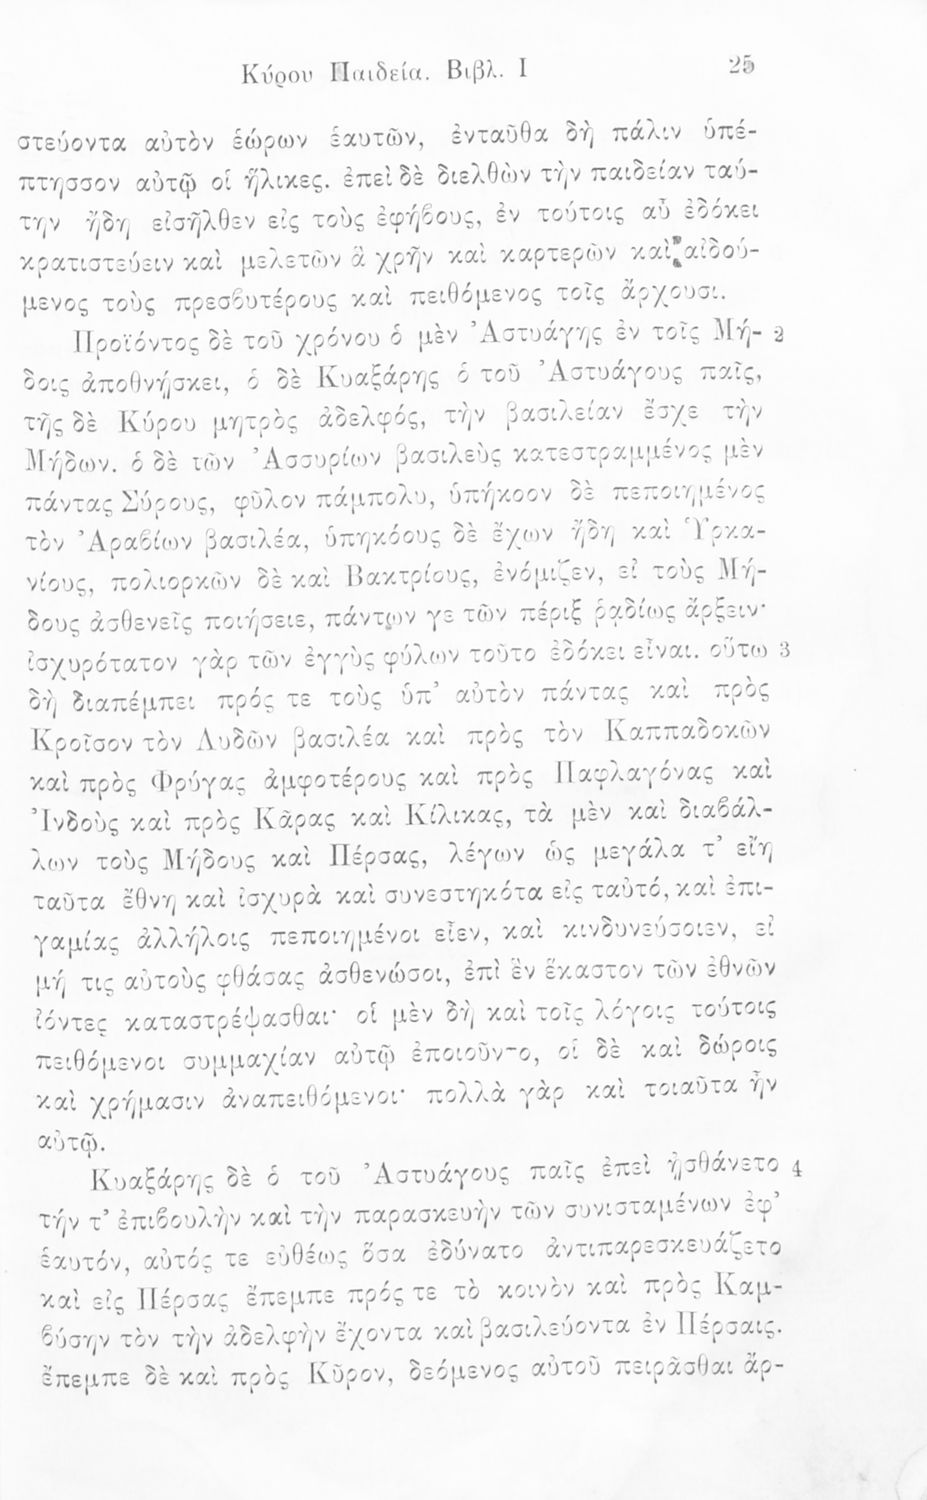 Κύρου Παιδεία. Βιβλ. I 25
στεύοντα αὐτὸν ἑώρων ἑαυτῶν, ἐνταῦθα δὴ πάλιν ὑπέ-
πτησσον αὐτῷ οἱ ἥλικες. ἐπεὶ δὲ διελθὼν τὴν παιδείαν ταύ-
την ἤδη εἰσῆλθεν εἰς τοὺς ἐφήϐους, ἐν τούτοις αὖ ἐδόκει
κρατιστεύειν καὶ μελετῶν ἃ χρῆν καὶ καρτερῶν καὶ αἰδού-
μενος τοὺς πρεσϐυτέρους καὶ πειθόμενος τοῖς ἄρχουσι.
Προϊόντος δὲ τοῦ χρόνου ὁ μὲν Ἀστυάγης ἐν τοῖς Μή- 2
δοις ἀποθνῄσκει, ὁ δὲ Κυαξάρης ὁ τοῦ Ἀστυάγους παῖς,
τῆς δὲ Κύρου μητρὸς ἀδελφός, τὴν βασιλείαν ἔσχε τὴν
Μήδων. ὁ δὲ τῶν Ἀσσυρίων βασιλεὺς κατεστραμμένος μὲν
πάντας Σύρους, φῦλον πάμπολυ, ὑπήκοον δὲ πεποιημένος
τὸν Ἀραϐίων βασιλέα, ὑπηκόους δὲ ἔχων ἤδη καὶ Ὑρκα-
νίους, πολιορκῶν δὲ καὶ Βακτρίους, ἐνόμιζεν, εἰ τοὺς Μή-
δους ἀσθενεῖς ποιήσειε, πάντων γε τῶν πέριξ ῥᾳδίως ἄρξειν·
ἰσχυρότατον γὰρ τῶν ἐγγὺς φύλων τοῦτο ἐδόκει εἶναι. οὕτω 3
δὴ διαπέμπει πρός τε τοὺς ὑπ’ αὐτὸν πάντας καὶ πρὸς
Κροῖσον τὸν Λυδῶν βασιλέα καὶ πρὸς τὸν Καππαδοκῶν
καὶ πρὸς Φρύγας ἀμφοτέρους καὶ πρὸς Παφλαγόνας καὶ
Ἰνδοὺς καὶ πρὸς Κᾶρας καὶ Κίλικας, τὰ μὲν καὶ διαϐάλ-
λων τοὺς Μήδους καὶ Πέρσας, λέγων ὡς μεγάλα τ’ εἴη
ταῦτα ἔθνη καὶ ἰσχυρὰ καὶ συνεστηκότα εἰς ταὐτό, καὶ ἐπι-
γαμίας ἀλλήλοις πεποιημένοι εἶεν, καὶ κινδυνεύσοιεν, εἰ
μή τις αὐτοὺς φθάσας ἀσθενώσοι, ἐπὶ ἓν ἕκαστον τῶν ἐθνῶν
ἰόντες καταστρέψασθαι· οἱ μὲν δὴ καὶ τοῖς λόγοις τούτοις
πειθόμενοι συμμαχίαν αὐτῷ ἐποιοῦντο, οἱ δὲ καὶ δώροις
καὶ χρήμασιν ἀναπειθόμενοι· πολλὰ γὰρ καὶ τοιαῦτα ἦν
αὐτῷ.
Κυαξάρης δὲ ὁ τοῦ Ἀστυάγους παῖς ἐπεὶ ᾐσθάνετο 4
τήν τ’ ἐπιϐουλὴν καὶ τὴν παρασκευὴν τῶν συνισταμένων ἐφ’
ἑαυτόν, αὐτός τε εὐθέως ὅσα ἐδύνατο ἀντιπαρεσκευάζετο
καὶ εἰς Πέρσας ἔπεμπε πρός τε τὸ κοινὸν καὶ πρὸς Καμ-
ϐύσην τὸν τὴν ἀδελφὴν ἔχοντα καὶ βασιλεύοντα ἐν Πέρσαις.
ἔπεμπε δὲ καὶ πρὸς Κῦρον, δεόμενος αὐτοῦ πειρᾶσθαι ἄρ-